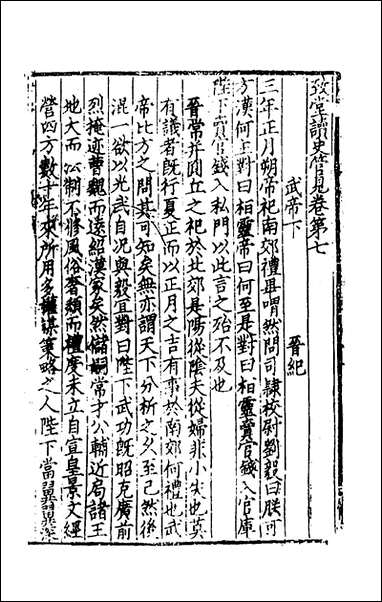 致堂讀史管見卷第七
武帝下　　晉紀
三年正月朔帝祀南郊禮畢喟然問司隸校尉劉毅曰朕可
方漢何主對曰桓靈帝曰何至是對曰桓靈賣官錢入官庫
陛下賣官錢入私門以此言之殆不及也
晉常并圜丘之祀於北郊是陽從陰夫從婦非小失也莫
有議者既行夏正而以正月之吉有事於南郊何禮也武
帝比方之問其可知矣無亦謂天下分析之久至己然後
混一欲以光武自況與毅宜對曰陛下武功既昭克廣前
烈掩迹曹魏而遠紹漢家矣然儲嗣常才公輔近局諸王
地大而公制不修風俗奢頹而禮度未立自宜皇景文經
營四方數十年來所用多權謀策略之人陛下當翼翼深